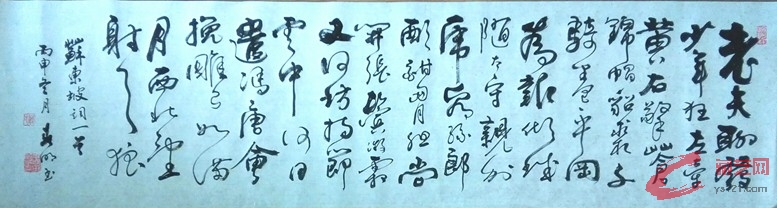 老夫聊發
少年狂左牽
黄右擎蒼
錦帽貂裘千
騎卷平岡
為報傾城
隨太守親射
虎看孫郎
酒酣胸胆尚
開張鬢微霜
又何妨持節
雲中何日
遣馮唐會
挽雕弓如滿
月西北望
射天狼
蘇東坡詞一首
丙申冬月